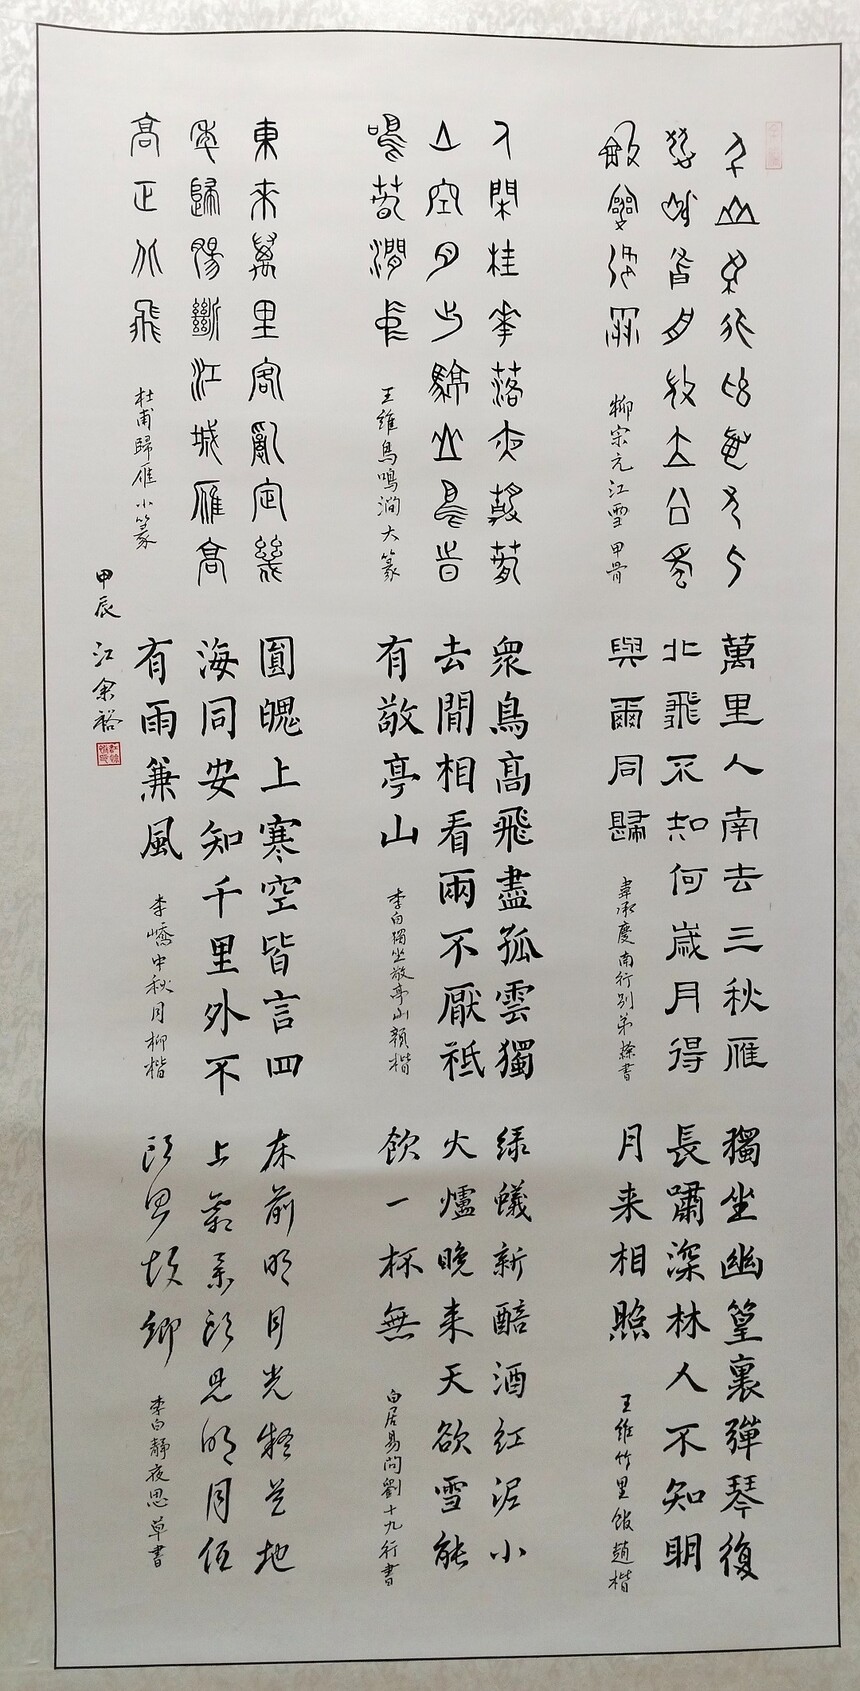 千山鳥飛絕萬徑人
蹤滅孤舟蓑笠翁獨
釣寒江雪
柳宗元江雪 甲骨
人閑桂華落夜靜春
山空月出驚山鳥時
鳴春澗中
王維鳥鳴澗大篆
東來萬里客亂定幾
年歸腸斷江城雁高
高正北飛
杜甫歸雁小篆
萬里人南去三秋雁
北飛不知何歲月得
與爾同歸
韋承慶南行別弟隸書
眾鳥高飛盡孤雲獨
去閒相看兩不厭祗
有敬亭山
李白獨坐敬亭山顏楷
圓魄上寒空皆言四
海同安知千里外不
有雨兼風
李嶠中秋月柳楷
獨坐幽篁裏彈琴復
長嘯深林人不知明
月来相照
王維竹里館趙楷
綠蟻新醅酒紅泥小
火爐晚来天欲雪能
飲一杯無
白居易問劉十九行書
床前明月光疑是地
上霜舉頭望明月低
頭思故鄉
李白靜夜思草書
甲辰 江余裕